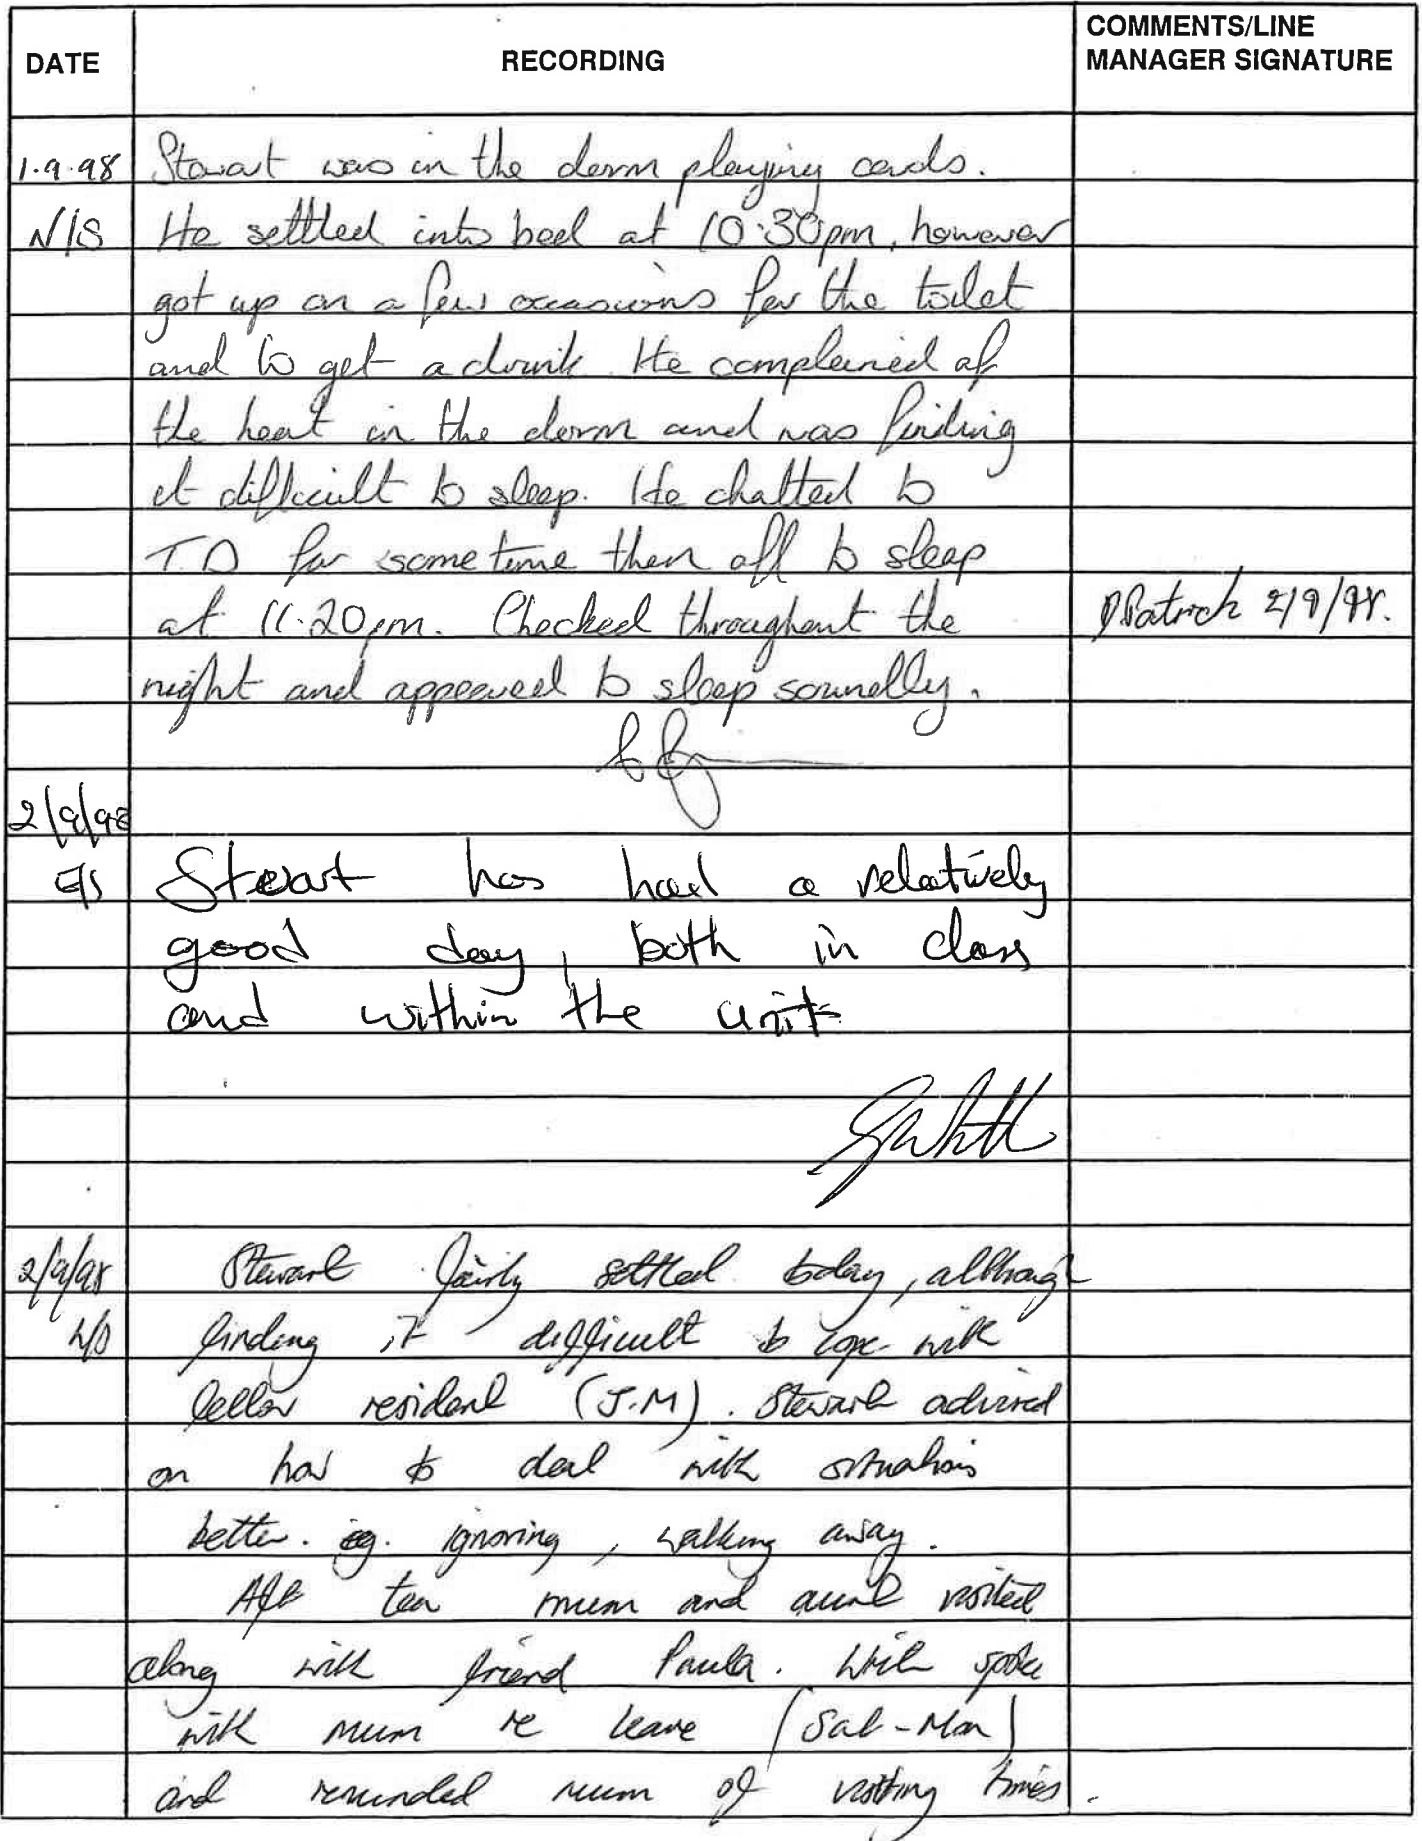 DATE RECORDING COMMENTS/LINE MANAGER SIGNATURE
1.9.98 Stewart was in the dorm playing cards.
N/S He settled into bed at 10.30pm, however
got up on a few occasions for the toilet
and to get a drink. He complained of
the heat in the dorm and was finding
it difficult to sleep. He chatted to
T.D for some time then off to sleep
at 11.20pm. Checked throughout the
night and appeared to sleep soundly.
D Patrick 2/9/98.
2/9/98
E/S Stewart has had a relatively
good day, both in class
and within the unit
2/9/98 Stewart fairly settled today, although
L/S finding it difficult to cope with
fellow resident (J.M). Stewart advised
on how to deal with situations
better. eg. ignoring, walking away.
After tea mum and aunt visited
along with friend Paula. Writer spoke
with mum re leave (Sat-Mon)
and reminded mum of visiting times.